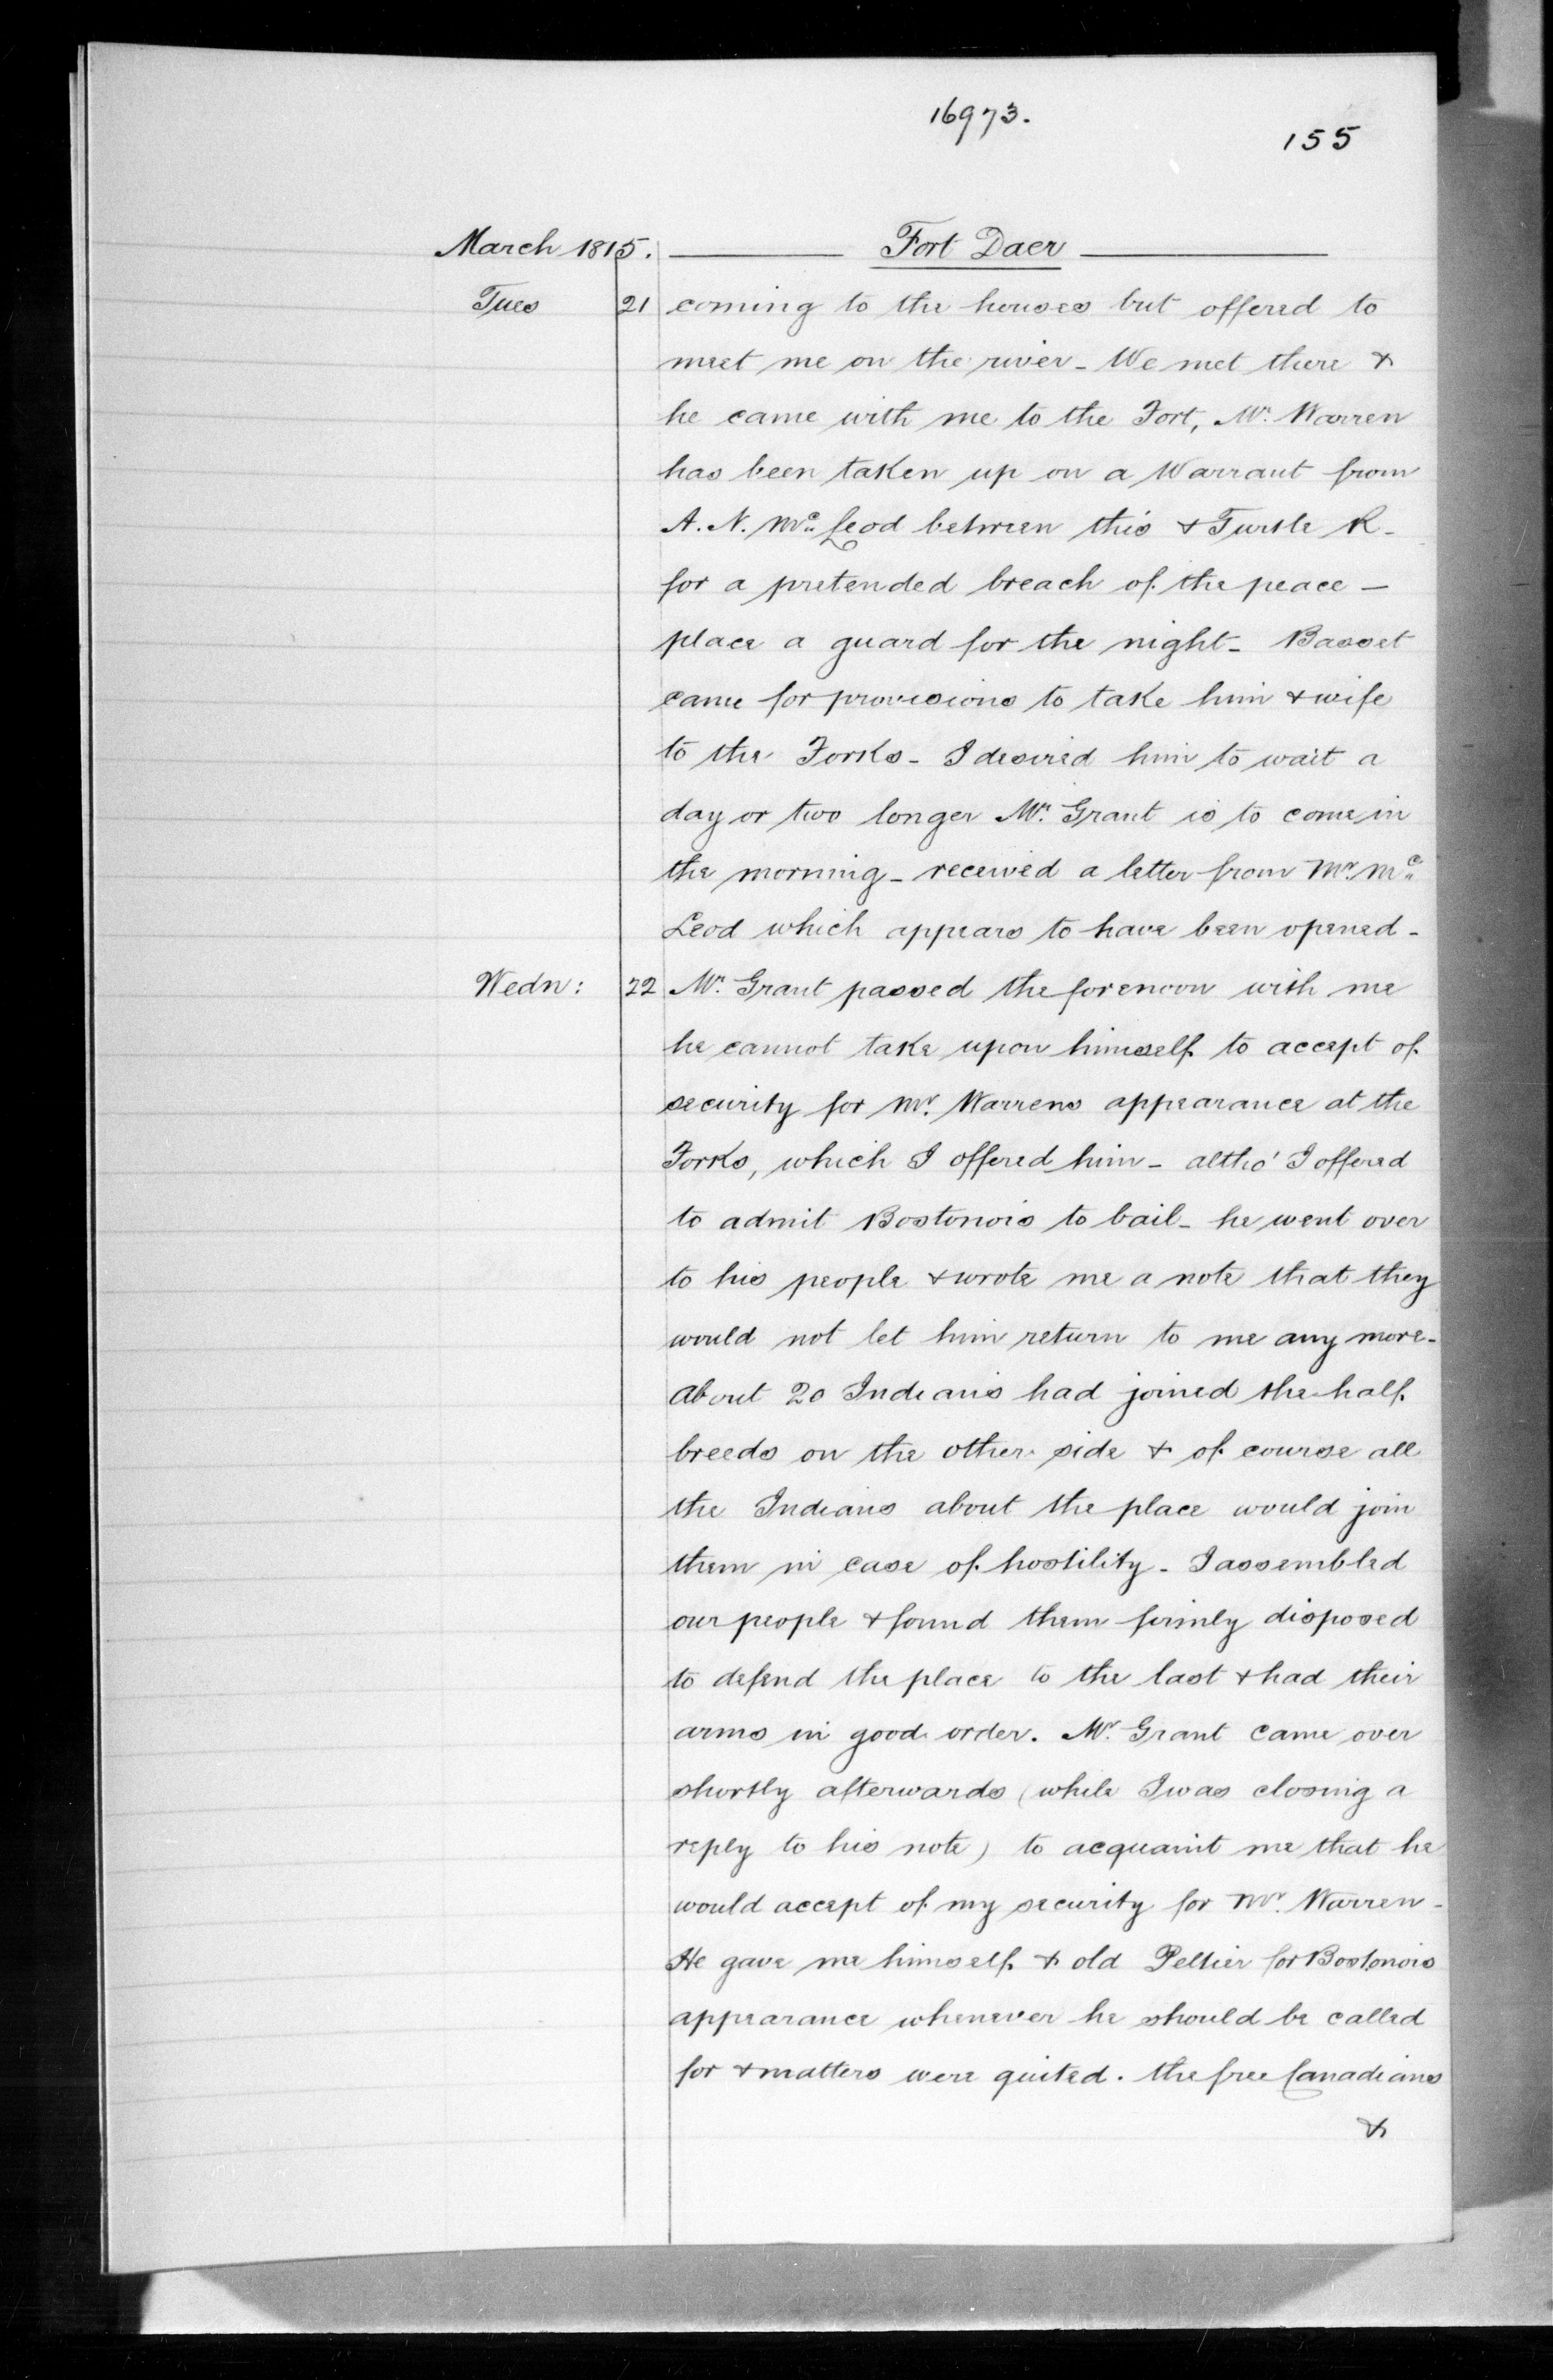 16973.
155
March 1815. Fort Daer
Tues 21 coming to the houses but offered to
meet me on the river - We met there &
he came with me to the Fort, Mr. Warren
has been taken up on a Warrant from
A. N. Mc Leod between this & Turtle R -
for a pretended breach of the peace —
place a guard for the night - Basset
came for provisions to take him & wife
to the Forks - I desired him to wait a
day or two longer Mr. Grant is to come in
the morning - received a letter from Mr. Mc
Leod which appears to have been opened -
Wedn: 22 Mr. Grant passed the forenoon with me
he cannot take upon himself to accept of
security for Mr. Warrens appearance at the
Forks, which I offered him - altho' I offered
to admit Bostonois to bail - he went over
to his people & wrote me a note that they
would not let him return to me any more -
About 20 Indians had joined the half
breeds on the other side & of course all
the Indians about the place would join
them in case of hostility - I assembled
our people & found them firmly disposed
to defend the place to the last & had their
arms in good order. Mr. Grant came over
shortly afterwards (while I was closing a
reply to his note) to acquaint me that he
would accept of my security for Mr. Warren -
He gave me himself & old Peltier for Bostonois
appearance whenever he should be called
for & matters were quited. the free Canadians
&